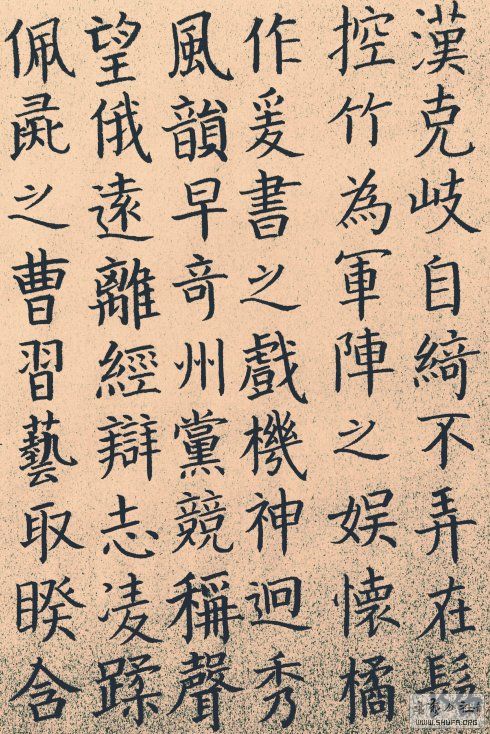 漢克岐自綺不弄在
控竹為軍陣之娱懷橘
作爰書之戲機神逈秀
風韻早奇州黨競稱聲
望俄遠離經辯志凌蹂
佩之曹習藝取睽含
WWW.SHUFA.ORG